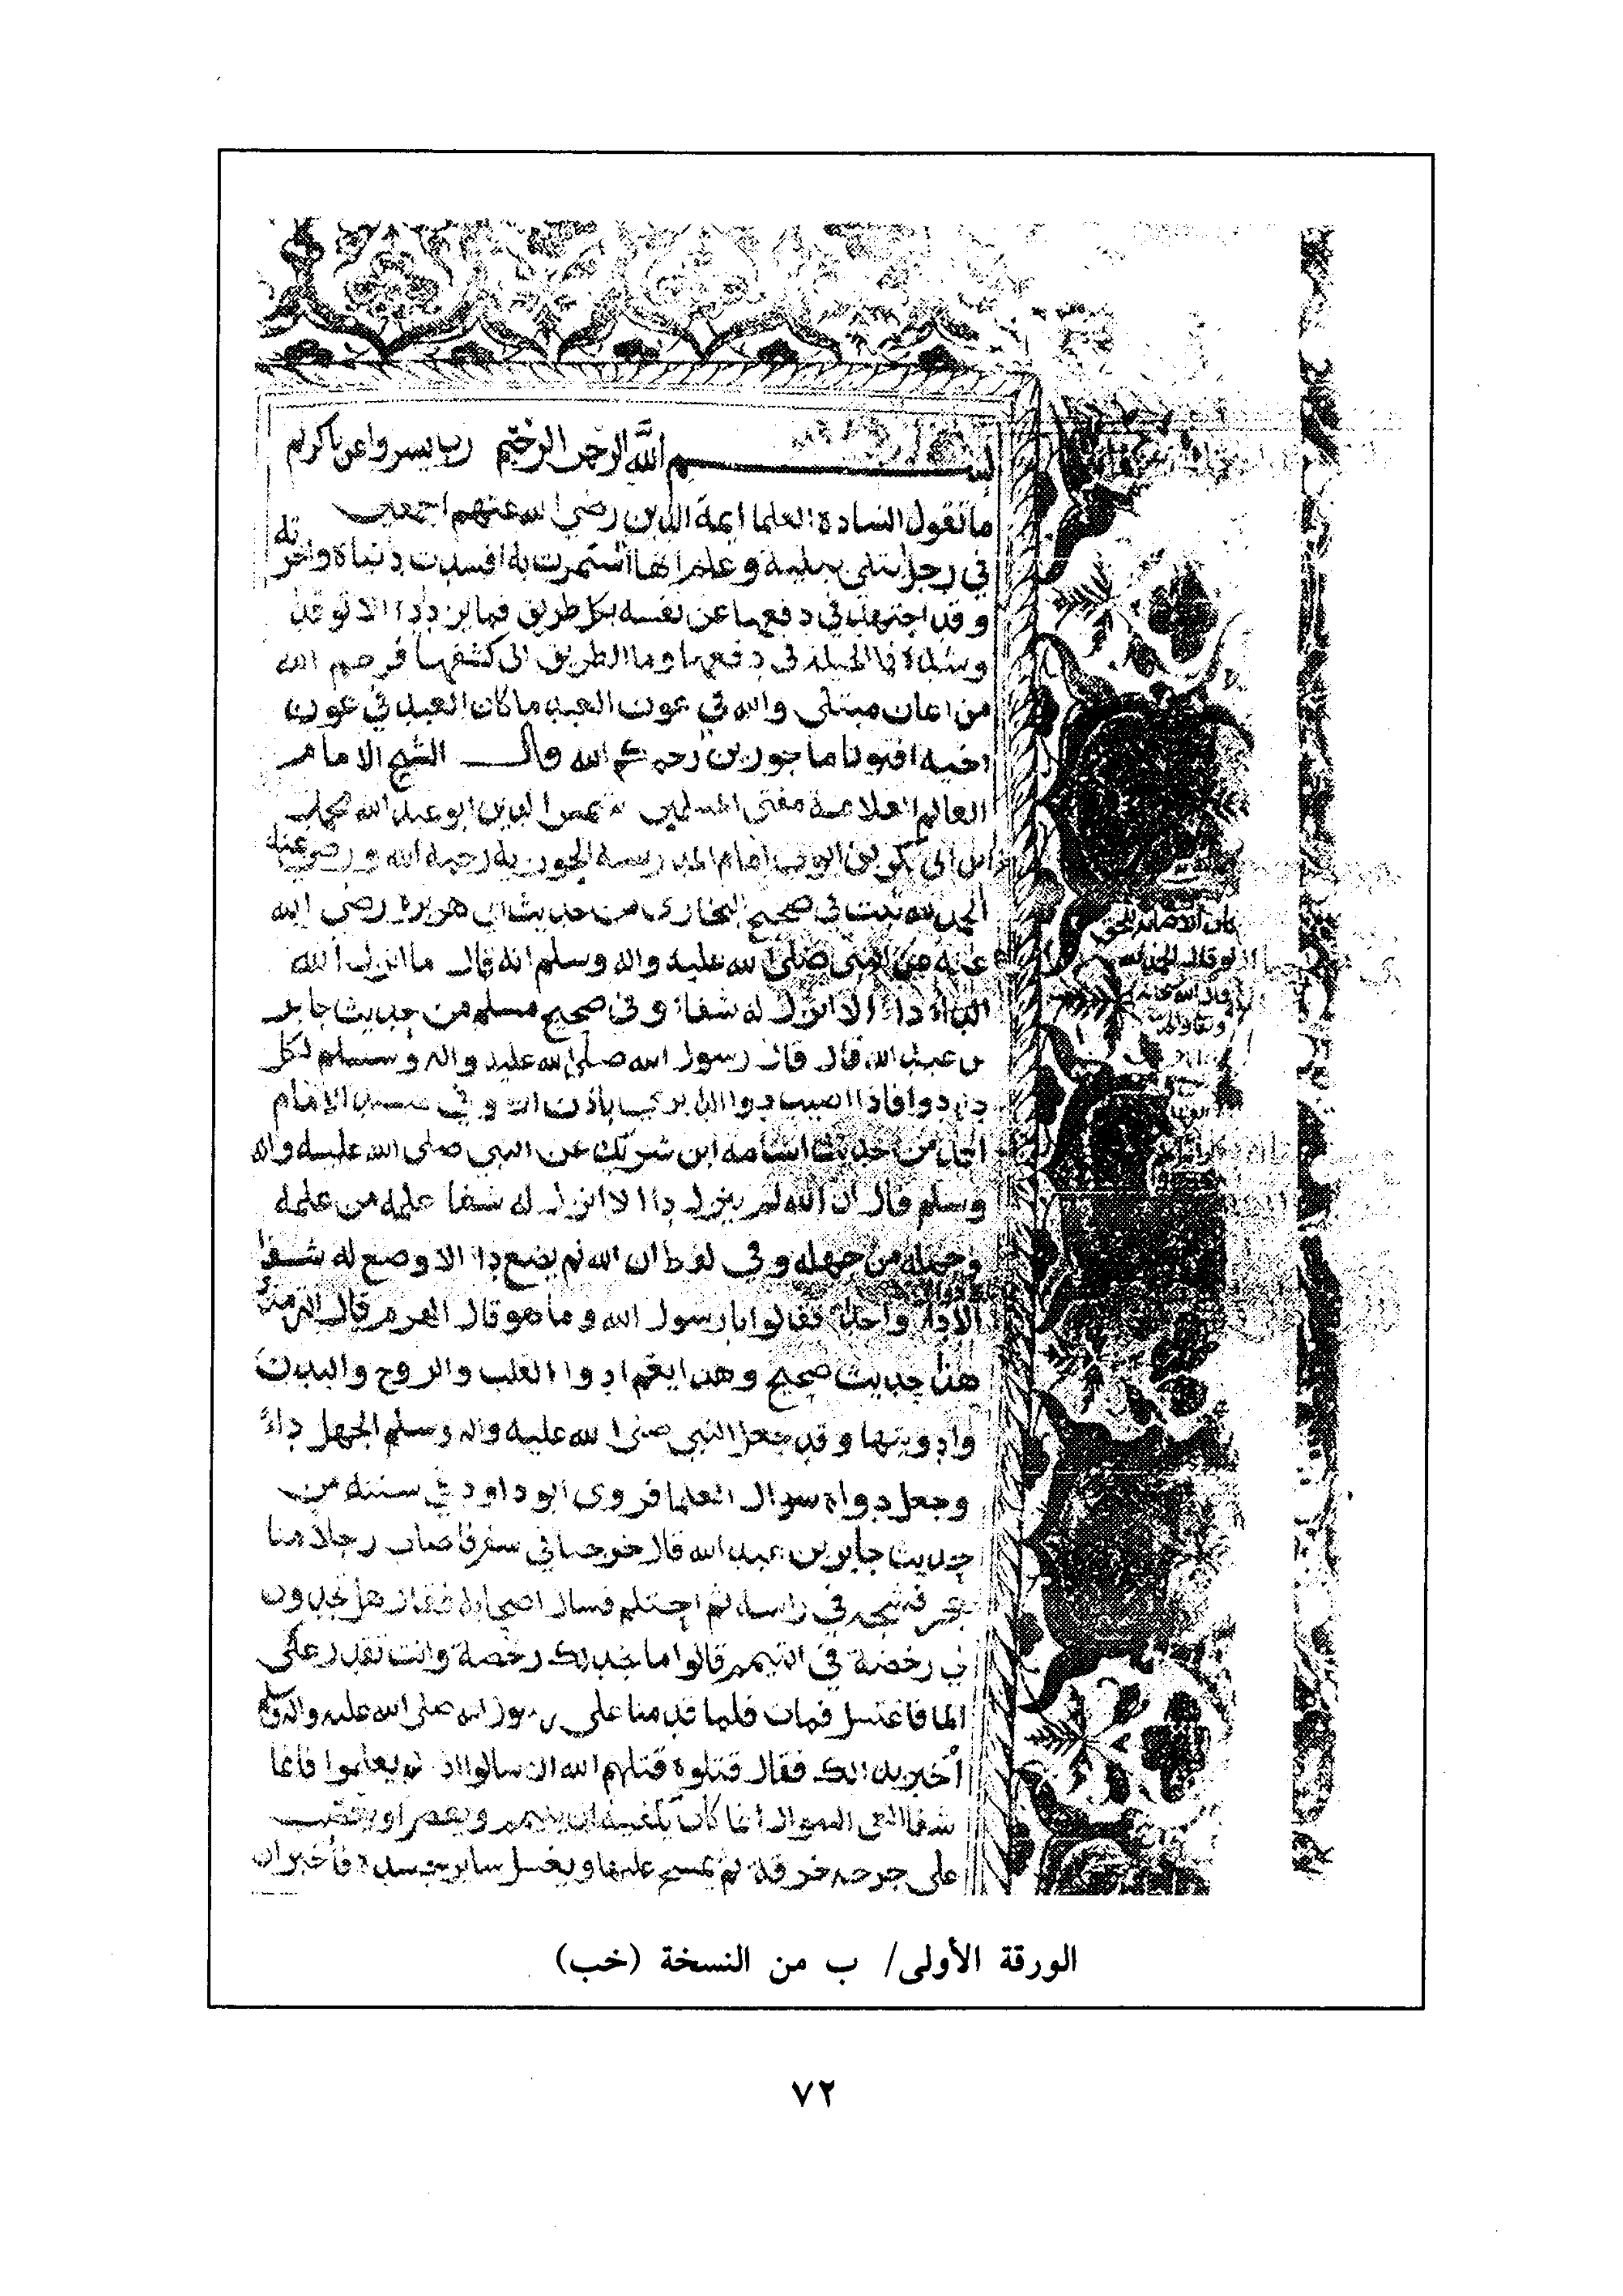 بسم الله الرحمن الرحيم رب يسر واعن يا كريم
ما تقول السادة العلما ايمة الدين رضي الله عنهم اجمعين
في رجل ابتلي ببلية وعلم انها استمرت به افسدت دنياه واخرته
وقد اجتهد في دفعها عن نفسه بكل طريق فما يزداد الا توقدا
وشدة فما الحيلة في دفعها وما الطريق الى كشفها فرحم الله
من اعان مبتلى والله في عون العبد ما كان العبد في عون
اخيه افتونا ماجورين رحمكم الله قال الشيخ الامام
العالم العلامة مفتي المسلمين شمس الدين ابو عبد الله محمد
ابن ابي بكر بن ايوب امام المدرسة الجوزية رحمه الله ورضي عنه
الحمد لله ثبت في صحيح البخاري من حديث ابي هريرة رضي الله
عنه عن النبي صلى الله عليه واله وسلم انه قال ما انزل الله
داء الا انزل له شفاء وفي صحيح مسلم من حديث جابر
بن عبد الله قال قال رسول الله صلى الله عليه واله وسلم لكل
داء دوا فاذا اصيب دوا الداء بري باذن الله وفي مسند الامام
احمد من حديث اسامه ابن شريك عن النبي صلى الله عليه واله
وسلم قال ان الله لم ينزل داا الا انزل له شفا علمه من علمه
وجهله من جهله وفي لفظ ان الله لم يضع داا الا وضع له شفا
الا داء واحدا فقالوا يا رسول الله وما هو قال الهرم قال الترمذي
هذا حديث صحيح وهذا يعم ادوا القلب والروح والبدن
وادويتها وقد جعل النبي صلى الله عليه واله وسلم الجهل داء
وجعل دواه سوال العلما فروى ابو داود في سننه من
حديث جابر بن عبد الله قال خرجنا في سفر فاصاب رجلا منا
حجر فشجه في راسه ثم احتلم فسال اصحابه فقال هل تجدون
لي رخصة في التيمم قالوا ما نجد لك رخصة وانت تقدر على
الما فاغتسل فمات فلما قدمنا على رسول الله صلى الله عليه واله وسلم
أخبر بذلك فقال قتلوه قتلهم الله الا سالوا اذ لم يعلموا فانما
شفا العي السوال انما كان يكفيه ان يتيمم ويعصر او يعصب
على جرحه خرقة ثم يمسح عليها ويغسل ساير جسده فأخبر ان
الورقة الأولى/ ب من النسخة (خب)
٧٢